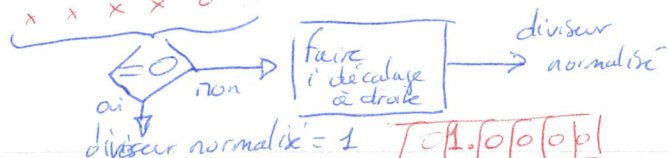 x x x x
= 0
Faire
i décalage
à droite
diviseur
normalisé
non
oui
diviseur normalisé = 1 01.0000